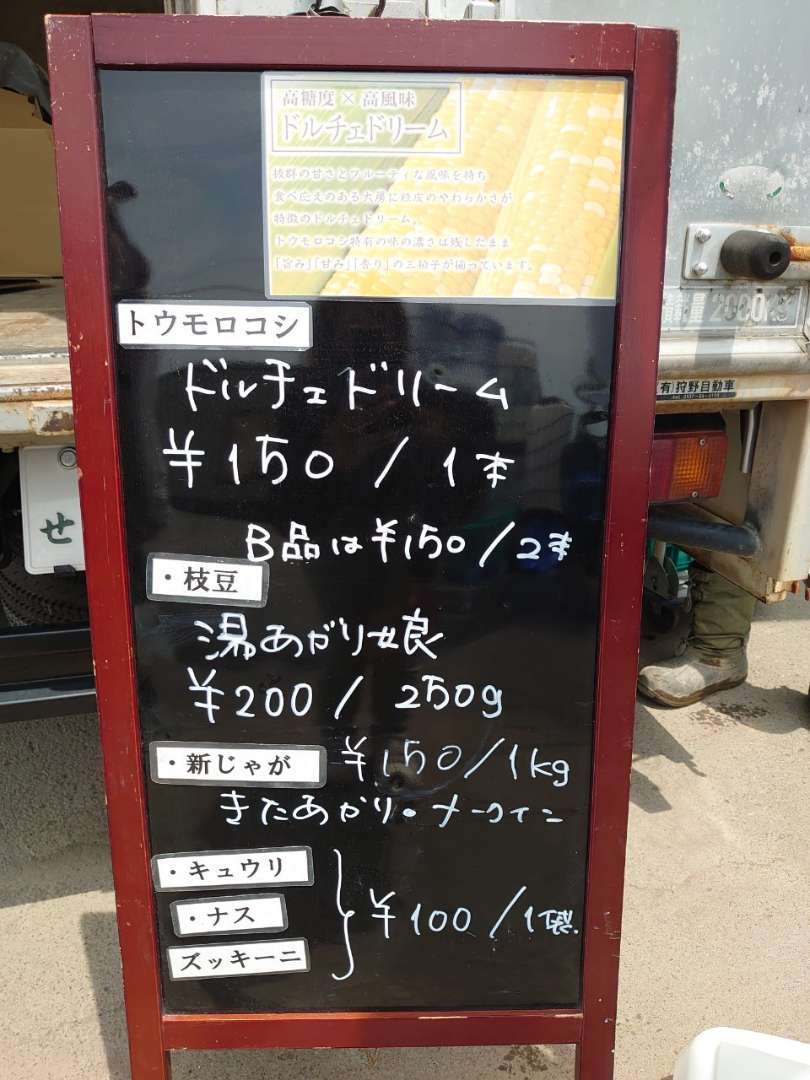 高糖度 × 高風味
ドルチェドリーム
抜群の甘さとフルーティな風味を持ち
食べ応えのある大房に粒皮のやわらかさが
特徴のドルチェドリーム。
トウモロコシ特有の味の濃さは残したまま
「旨み」「甘み」「香り」の三拍子が揃っています。
トウモロコシ
ドルチェドリーム
¥150/1本
B品は¥150/2本
・枝豆
湯あがり娘
¥200/250g
・新じゃが ¥150/1kg
きたあかり・メークイン
・キュウリ
・ナス
ズッキーニ
¥100/1袋
(有)狩野自動車
せ